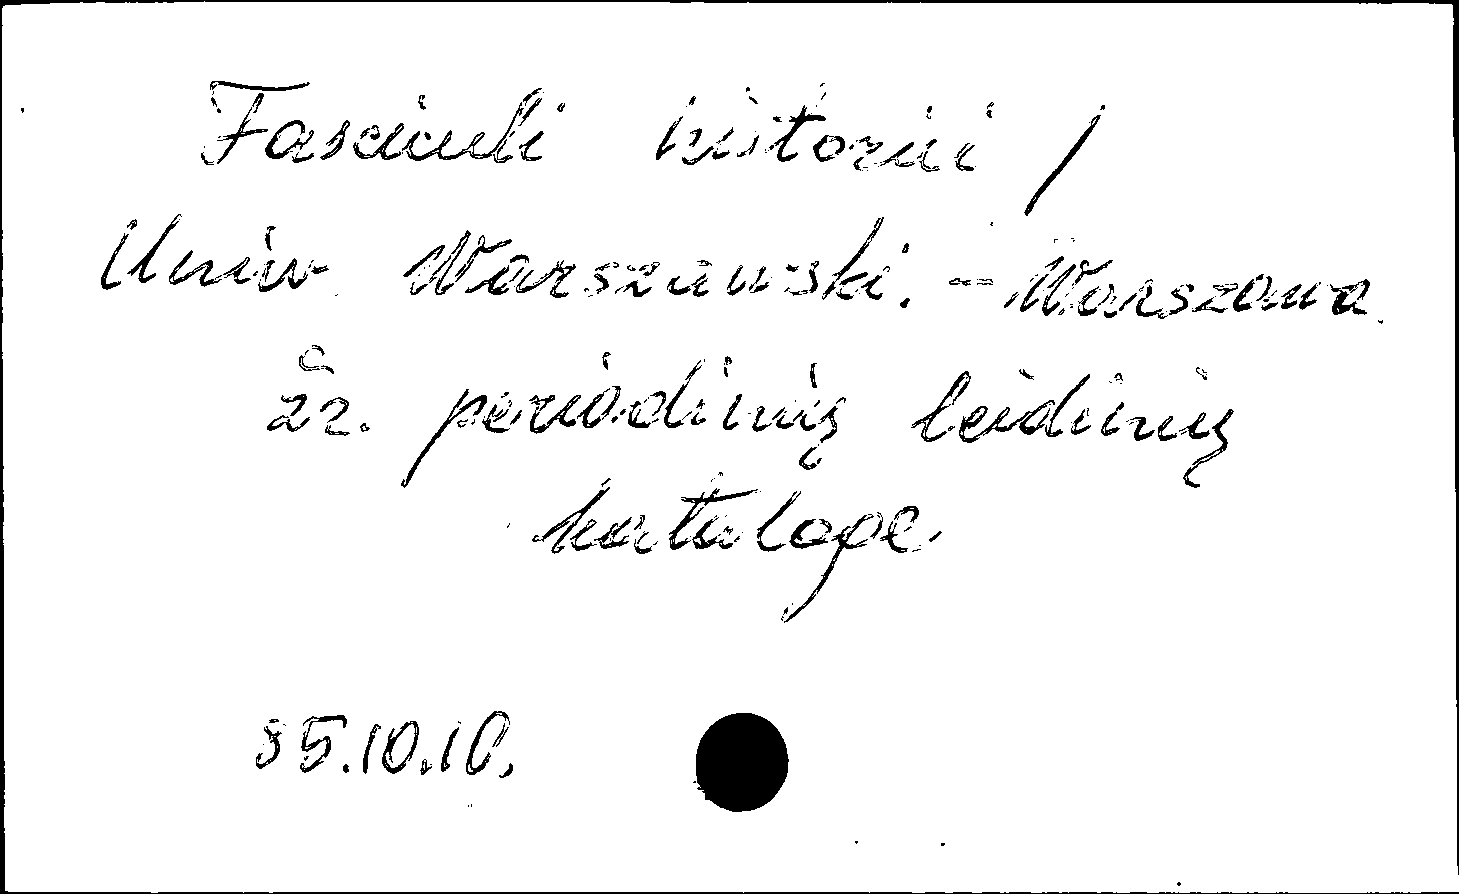 Fasciculi historici /
Uniw. Warszawski. - Warszawa.
žr. periodinių leidinių
kataloge
85.10.10.